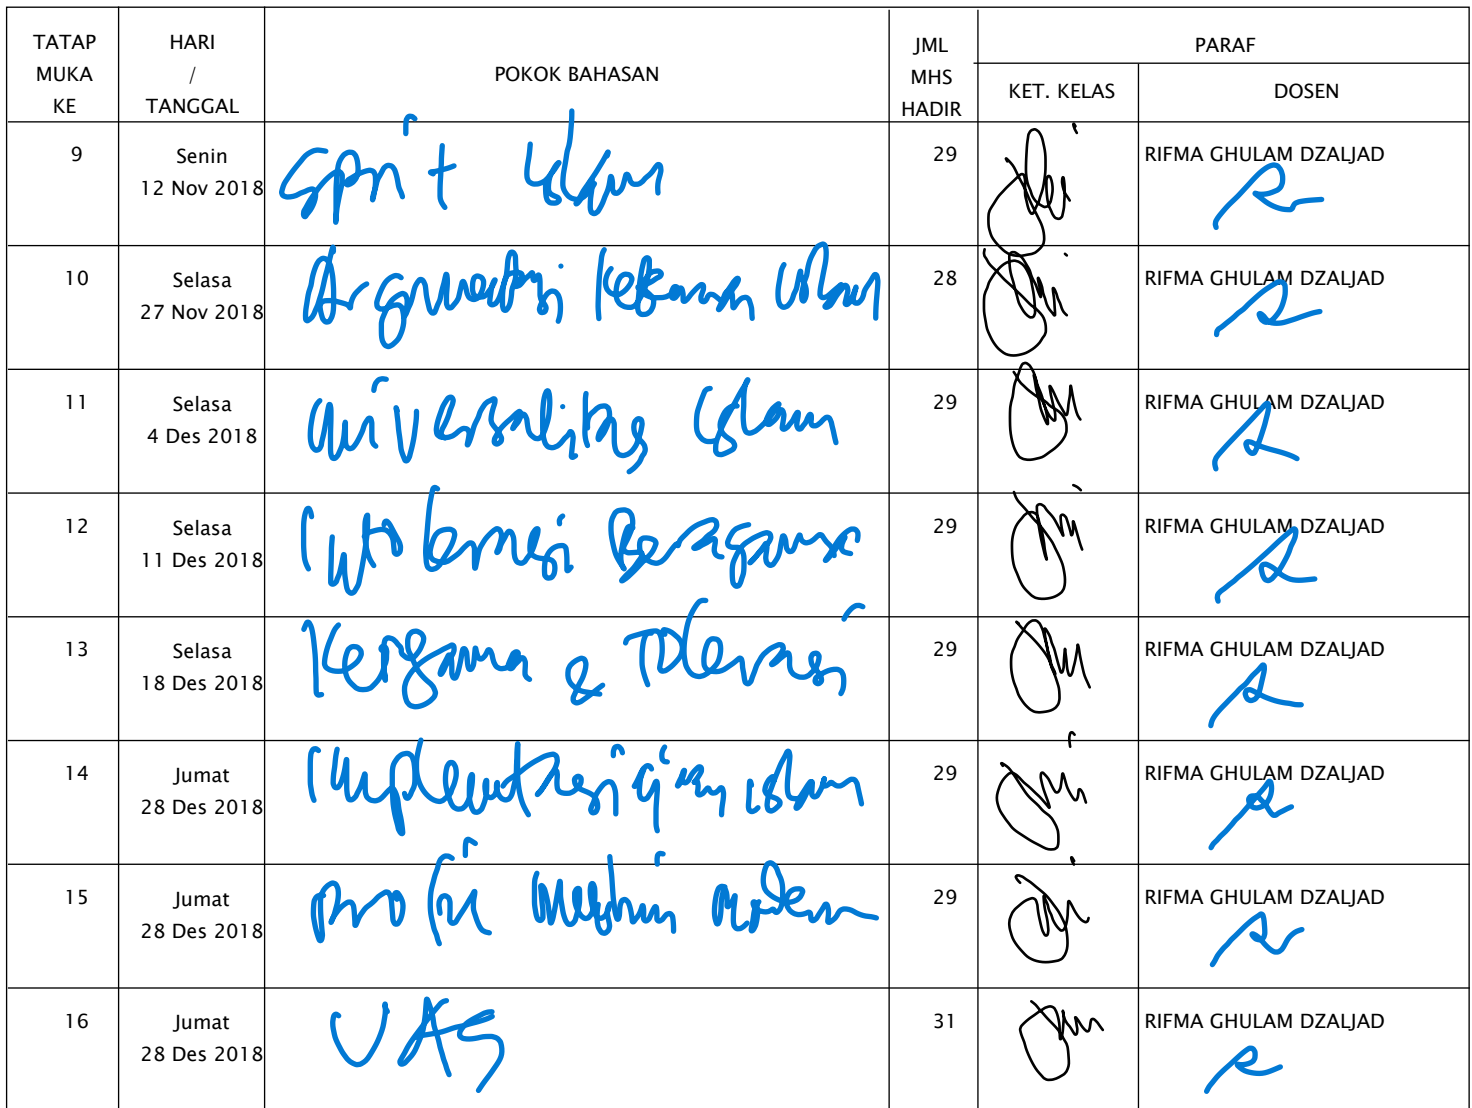 TATAP MUKA KE HARI / TANGGAL POKOK BAHASAN JML MHS HADIR PARAF
KET. KELAS DOSEN
9 Senin 12 Nov 2018 Spirit Islam 29 RIFMA GHULAM DZALJAD
10 Selasa 27 Nov 2018 Argumentasi Islam 28 RIFMA GHULAM DZALJAD
11 Selasa 4 Des 2018 Universalitas Islam 29 RIFMA GHULAM DZALJAD
12 Selasa 11 Des 2018 Intoleransi Beragama 29 RIFMA GHULAM DZALJAD
13 Selasa 18 Des 2018 & Toleransi 29 RIFMA GHULAM DZALJAD
14 Jumat 28 Des 2018 Implementasi ajaran islam 29 RIFMA GHULAM DZALJAD
15 Jumat 28 Des 2018 profil muslim modern 29 RIFMA GHULAM DZALJAD
16 Jumat 28 Des 2018 UAS 31 RIFMA GHULAM DZALJAD